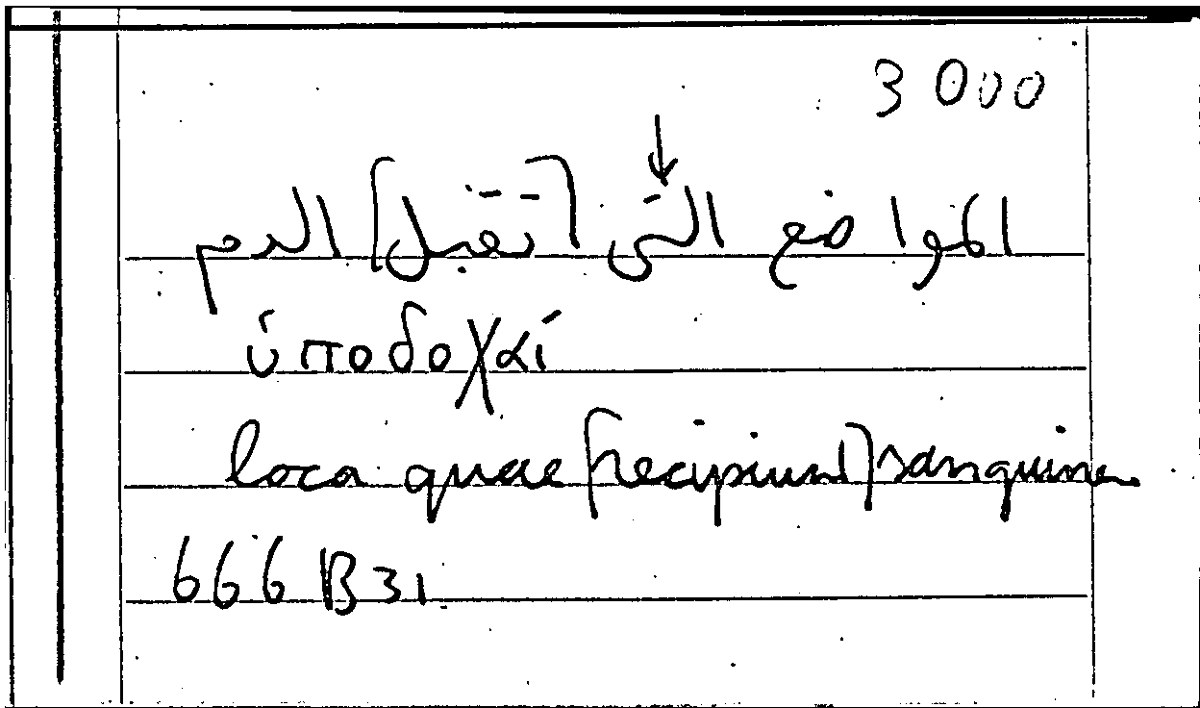 3000
↓
المواضع التى [تقبل] الدم
ὑποδοχαί
loca quae [recipiunt] sanguine
666 B 31